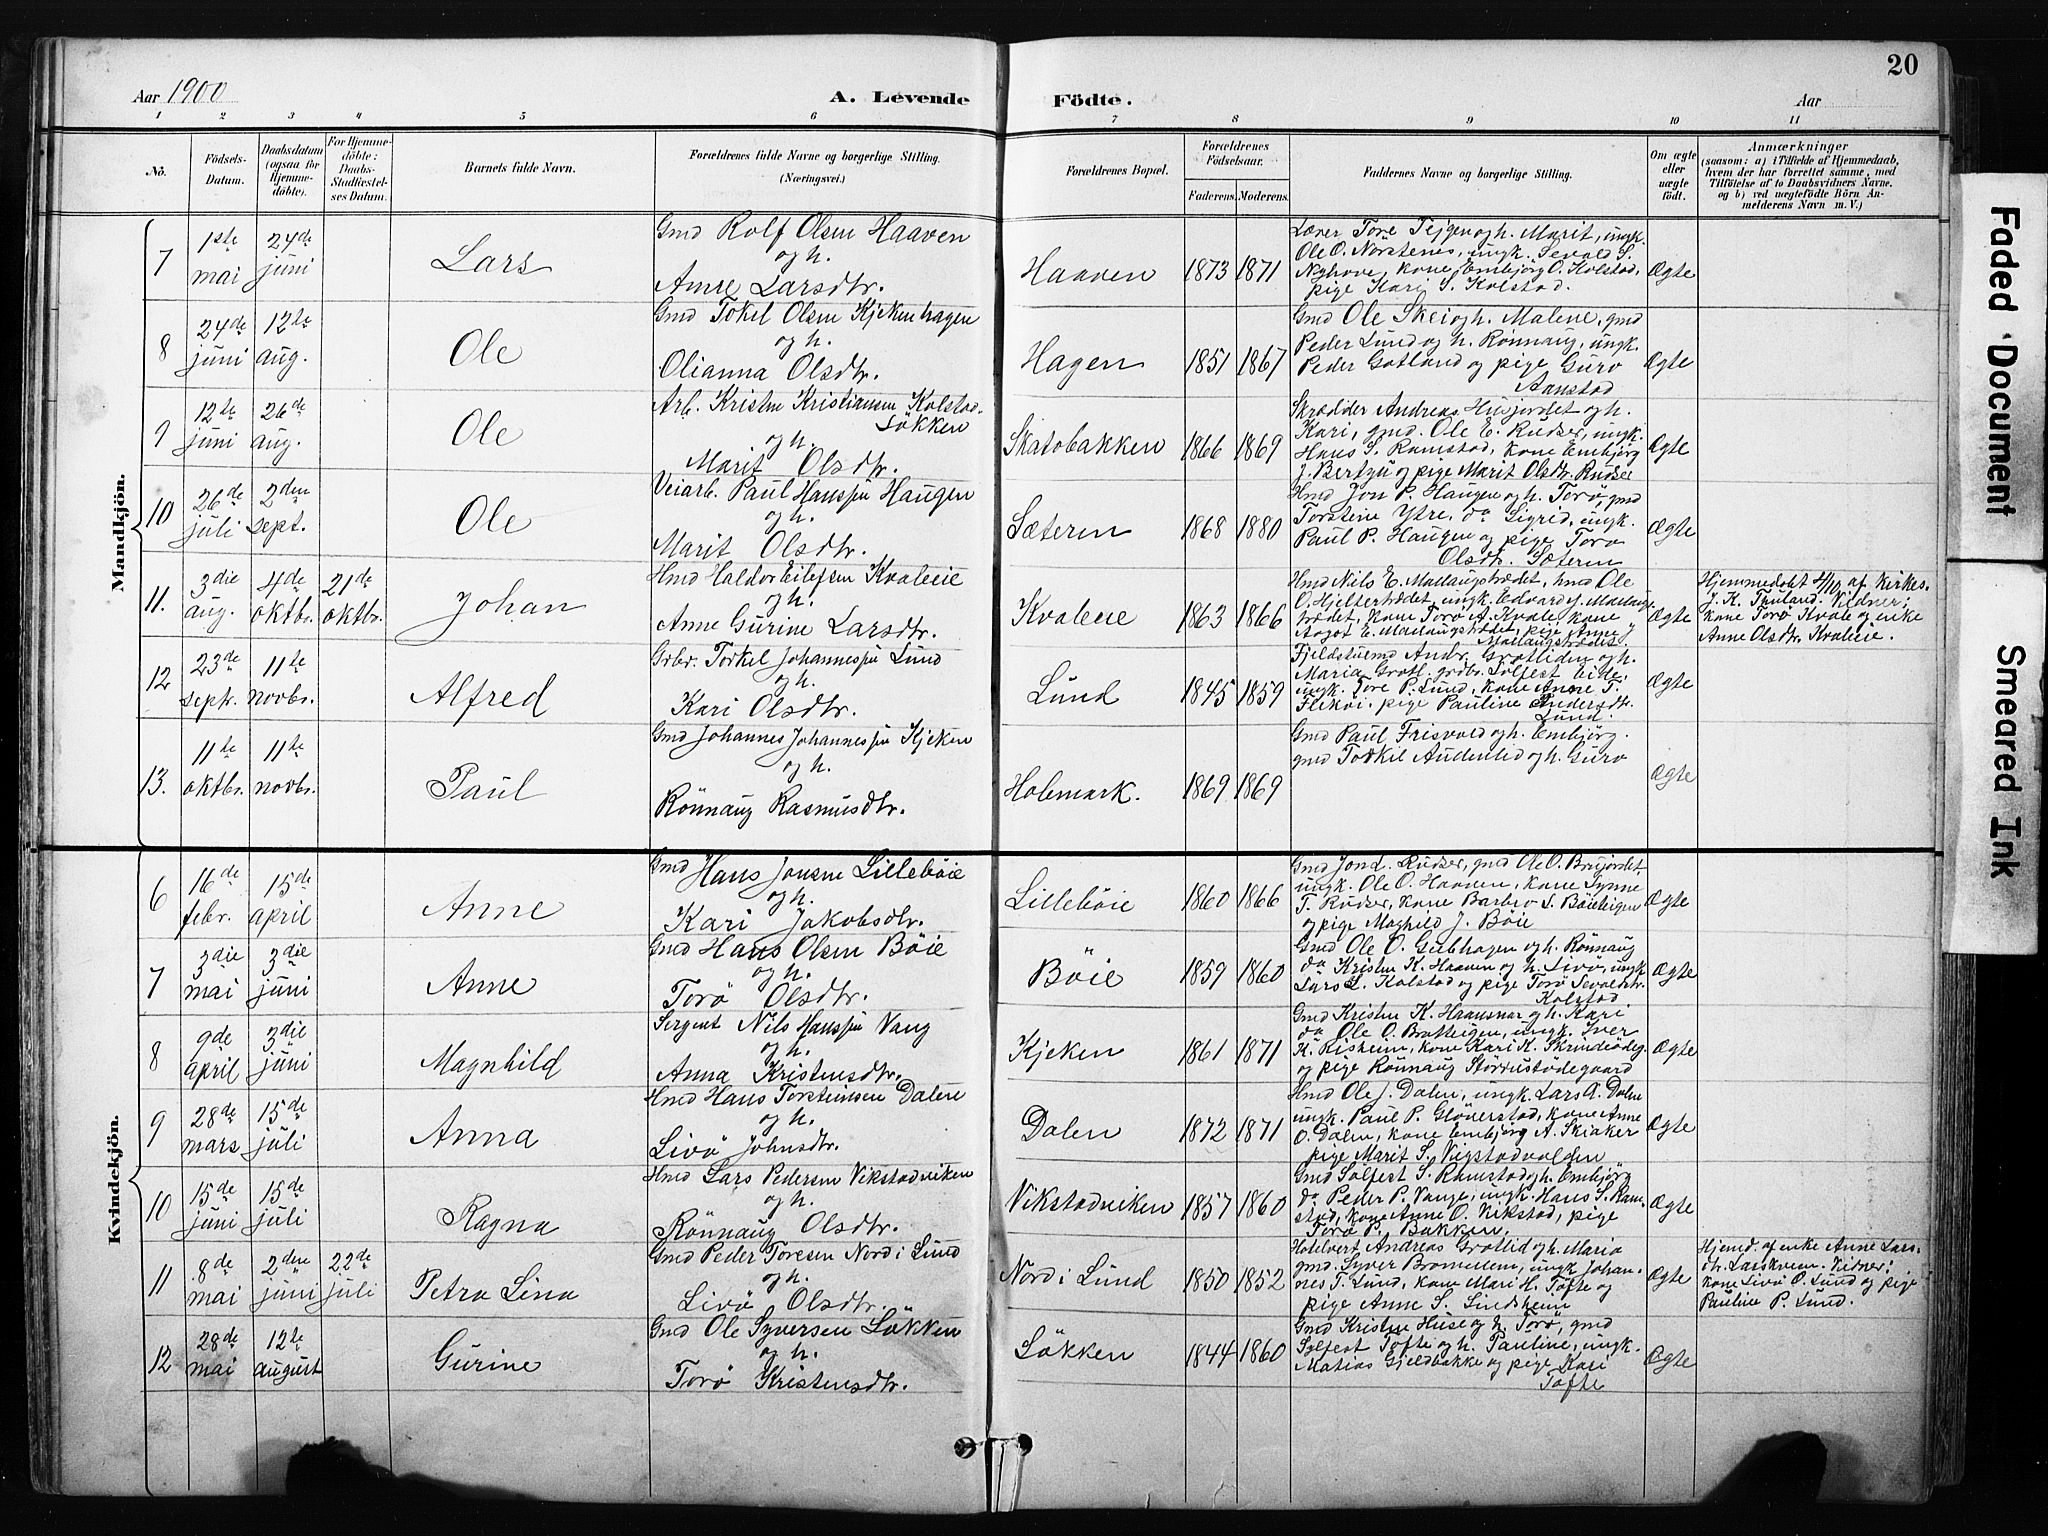 20
Aar 1900
A. Levende Födte.
Aar
1 2 3 4 5 6 7 8 9 10 11
No.
Födsels-Datum.
Daabsdatum (ogsaa for Hjemme-döbte).
For Hjemme-döbte: Daabs-Stadfæstel-ses Datum.
Barnets fulde Navn.
Forældrenes fulde Navne og borgerlige Stilling.
(Næringsvei.)
Forældrenes Bopæl.
Forældrenes Födselsaar.
Faderens. Moderens.
Faddernes Navne og borgerlige Stilling.
Om ægte eller uægte födt.
Anmærkninger
(saasom: a) i Tilfælde af Hjemmedaab, hvem der har forrettet samme, med Tilföielse af to Daabsvidners Navne, og b) ved uægtefödte Börn An-melderens Navn m. V.)
Mandkjön.
7 1ste mai 24de juni Lars
Gmd Rolf Olsen Haaven
og h.
Anne Larsdtr.
Haaven 1873 1871
Lærer Tore Tejgen og h. Marit, ungk.
Ole O. Norstenes, ungk. Sevald S.
Nyhove, kone Embjörg O. Kolstad,
pige Kari S. Kolstad.
Ægte
8 24de juni 12te aug. Ole
Gmd Tokel Olsen Kjekenhagen
og h.
Olianna Olsdtr.
Hagen 1851 1867
Gmd Ole Skei og h. Malene, gmd
Peder Lund og h. Rönnaug, ungk.
Peder Gotland og pige Guro
Aanstad
Ægte
9 12te juni 26de aug. Ole
Arb. Kristen Kristiansen Kolstad-
Lökken
og h.
Marit Olsdtr.
Skatobakken 1866 1869
Skrædder Andreas Husjordet og h.
Kari, gmd. Ole E. Rudser, ungk.
Hans S. Ramstad, kone Embjörg
og pige Marit Olsdtr. Rudse
Ægte
10 26de juli 2den sept. Ole
Veiarb. Paul Hanssen Haugen
og h.
Marit Olsdtr.
Sæteren 1868 1880
Hmd Jon P. Haugen og h. Torö, gmd
Torsteine Ytre, do Sigrid, ungk.
Paul P. Haugen og pige Toro
Olsdtr. Sæteren
Ægte
11. 3die aug. 4de oktbr. 21de oktbr. Johan
Hmd Haldor Eilefsen Kvaleeie
og h.
Anne Gurine Larsdtr.
Kvaleeie 1863 1866
Hmd Nils E. Mallaugstrædet, hmd Ole
O. Hjeltertrædet, ungk. Edvard J. Mallaugs-
trædet, kone Torö A. Kvale, kone
Aagot E. Mallaugstrædet, pige Anne J
Mallaugstrædet.
Ægte
Hjemmedöbt 4/10 af Kirkes.
J. K. Truland. Vidner:
kone Torö Kvale og enke
Anne Olsdtr. Kvaleeie.
12 23de septr. 11te novbr. Alfred
Grbr. Torkel Johannessen Lund
og h.
Kari Olsdtr.
Lund 1845 1859
Fjeldstuemd Andr. Grotliden og h.
Maria Grotl. grdbr. Solfest Eide,
ungk. Tore P. Lund, kone Anne T.
Fleköi. pige Pauline Pedersdtr.
Lund.
Ægte
13. 11te oktbr. 11te novbr. Paul
Gmd Johannes Johannessen Kjeken
og h.
Rönnaug Rasmusdtr.
Holemark. 1869 1869
Gmd Paul Frisvold og h. Embjörg.
gmd Torkil Audenlid og h. Guro
Ægte
Kvindekjön.
6 16de febr. 15de april Anne
Gmd Hans Jonsen Lillebøie
og h.
Kari Jakobsdtr.
Lillebøie 1860 1866
Gmd Jon L. Rudser, gmd Ole O. Brujordet,
ungk. Ole O. Haaven, kone Synne
T. Rudser, kone Barbro S. Böieteigen
og pige Maghild J. Böie
Ægte
7 3die mai 3die juni Anne
Gmd Hans Olsen Böie
og h.
Torö Olsdtr.
Böie 1859 1860
Gmd Ole O. Gubhagen og h. Rönnaug
do Kristen K. Haaven og h. Livö, ungk
Lars L. Kolstad og pige Torö Sevaldstr.
Kolstad
Ægte
8 9de april 3die juni Magnhild
Sergent Nils Hanssen Vang
og h.
Anna Kristensdtr.
Kjeken 1861 1871
Gmd Kristen K. Haansnar og h. Kari
do Ole O. Bratteigen, ungk. Iver
K. Risheim, kone Kari K. Skrindeödeg.
og pige Rönnaug Störrustödegaard
Ægte
9 28de mars 15de juli Anna
Hmd Hans Torsteinsen Dalen
og h.
Livö Johnsdtr.
Dalen 1872 1871
Hmd Ole J. Dalen, ungk. Lars A. Dalen
ungk. Paul P. Glönerstad, kone Anne
O. Dalen, kone Embjörg A. Skiaker
pige Marit S. Vigstadvolden
Ægte
10 15de juni 15de juli Ragna
Hmd Lars Pedersen Vikstadviken
og h.
Rönnaug Olsdtr.
Vikstadviken 1857 1860
Gmd Solfest S. Ramstad og h. Embjörg
do Peder P. Vange, ungk. Hans S. Ram-
stad, kone Anne O. Vikstad, pige
Torö P. Bakken,
Ægte
11 8de mai 2den juni 22de juli Petra Lina
Gmd Peder Toresen Nord i Lund
og h.
Livö Olsdtr.
Nord i Lund 1850 1852
Hotelvert Andreas Grotlid og h. Maria
gmd. Syver Bromellem, ungk Johan-
nes T. Lund, kone Mari H. Tofte og
pige Anne S. Lindsheim
Ægte
Hjemd. af enke Anne Lars-
dtr. Larskvem. Vidner:
kone Livö O. Lund og pige
Pauline P. Lund.
12 28de mai 12te august Gurine
Gmd Ole Syversen Lökken
og h.
Torö Kristensdtr.
Lökken 1844 1860
Gmd Kristen Huse og h. Torö, gmd
Solfest Tofte og h. Pauline, ungk.
Matias Gjeldbakke og pige Kari
Tofte
Ægte
Faded Document
Smeared Ink